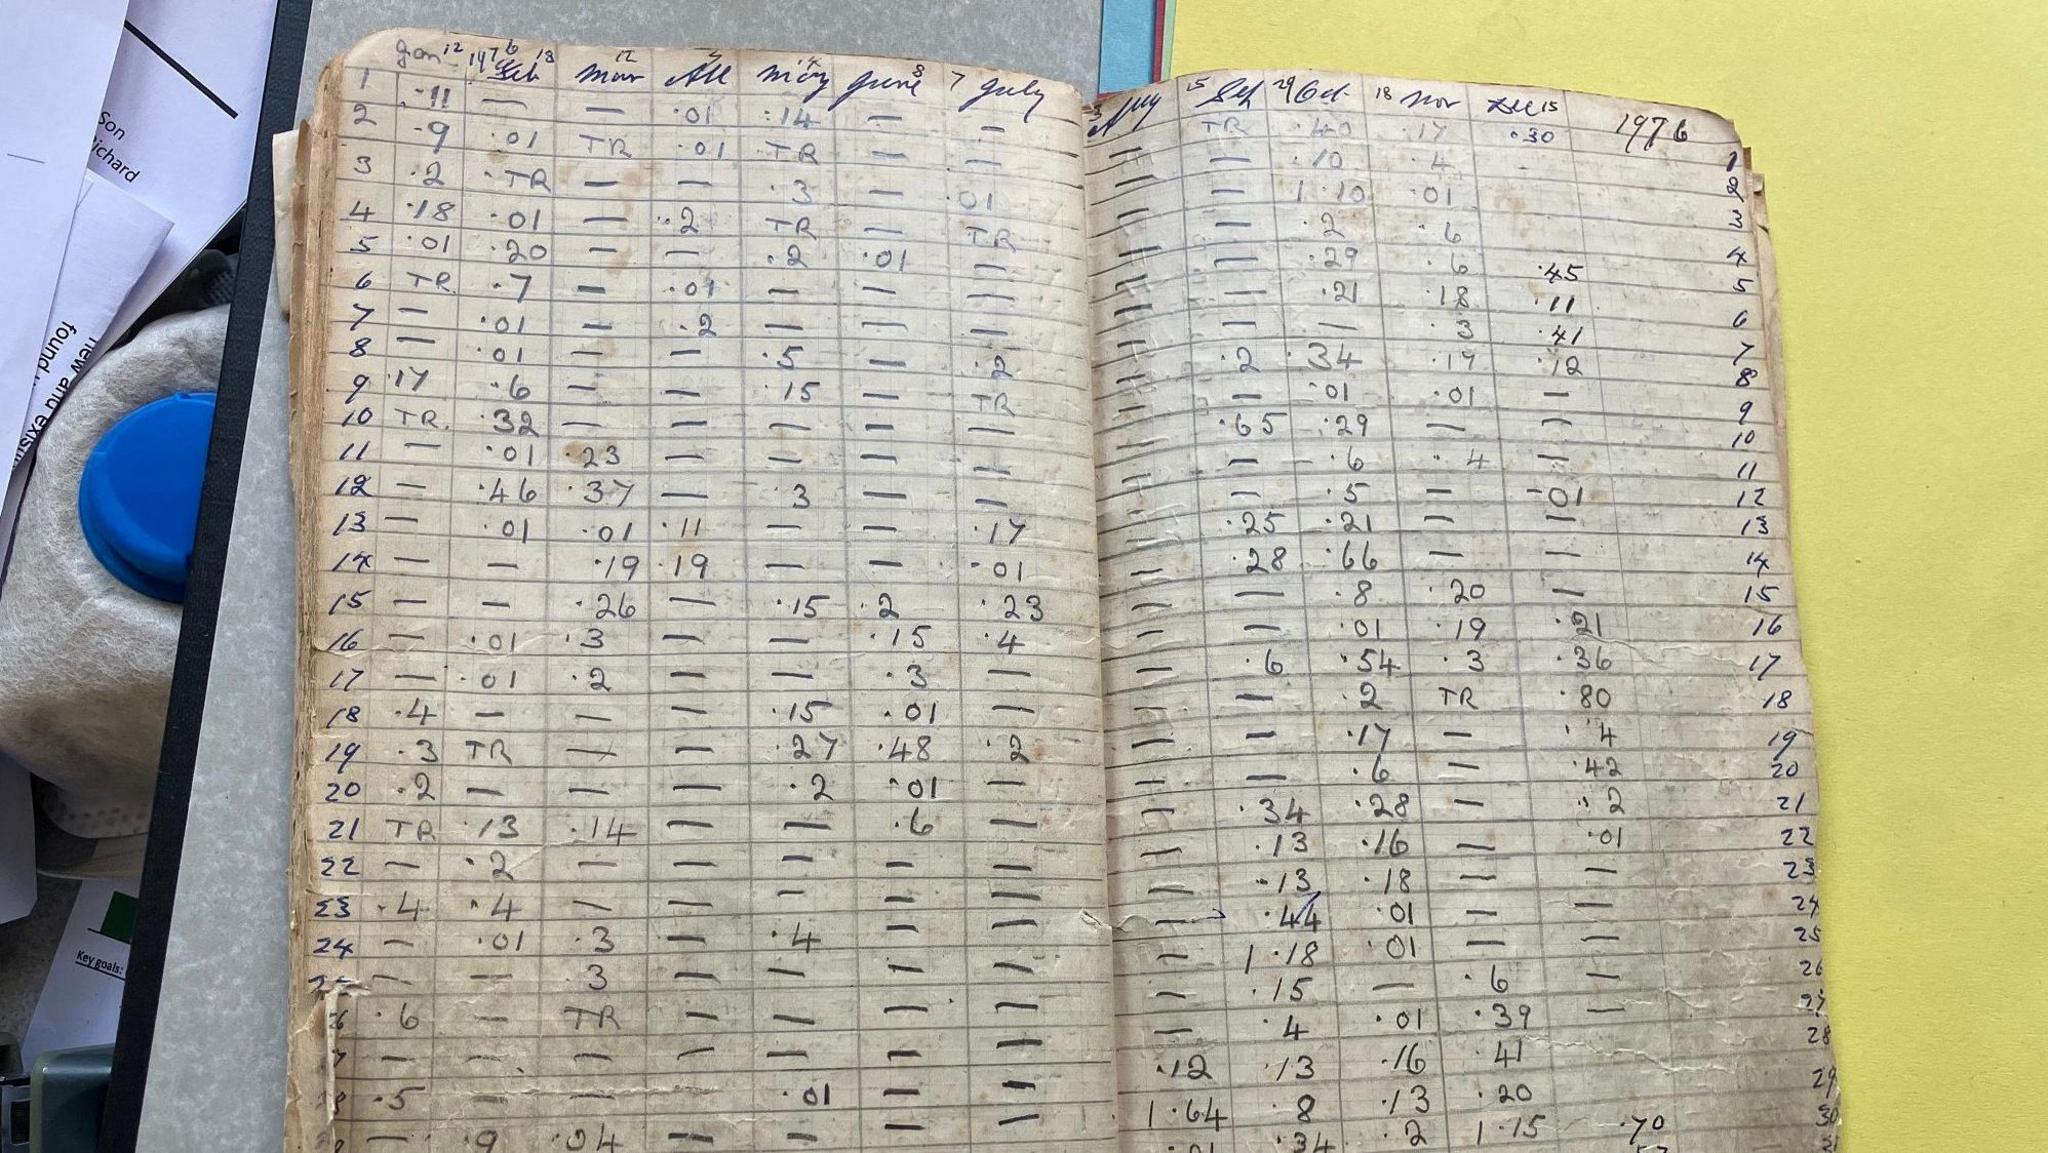 Son
Richard
new and existing
found
Key goals:
Jan 12 1976 Feb 18 Mar 12 Apl May 14 June 8 7 July
1 .11 — — .01 .14 — —
2 .9 .01 TR .01 TR — —
3 .2 .TR — — .3 — .01
4 .18 .01 — .2 TR — TR
5 .01 .20 — — .2 .01 —
6 TR .7 — .01 — — —
7 — .01 — .2 — — —
8 — .01 — — .5 — .2
9 .17 .6 — — .15 — TR
10 TR. .32 — — — — —
11 — .01 .23 — — — —
12 — .46 .37 — .3 — —
13 — .01 .01 .11 — — .17
14 — — .19 .19 — — .01
15 — — .26 — .15 .2 .23
16 — .01 .3 — — .15 .4
17 — .01 .2 — — .3 —
18 .4 — — — .15 .01 —
19 .3 TR — — .27 .48 .2
20 .2 — — — .2 .01 —
21 TR .13 .14 — — .6 —
22 — .2 — — — — —
23 .4 .4 — — — — —
24 — .01 .3 — .4 — —
— — .3 — — — —
.6 — TR — — — —
— — — — — — —
.5 — — — .01 — —
— .9 .04 — — —
3 Aug 15 Sep 29 Oct 18 Nov Dec 15 1976
— TR .40 .17 .30 1
— — .10 .4 2
— — 1.10 .01 3
— — .2 .6 4
— — .29 .6 .45 5
— — .21 .18 .11 6
— — — .3 .41 7
— .2 .34 .17 .12 8
— — .01 .01 — 9
— .65 .29 — — 10
— — .6 .4 — 11
— — .5 — .01 12
— .25 .21 — — 13
— .28 .66 — — 14
— — .8 .20 — 15
— — .01 .19 .21 16
— .6 .54 .3 .36 17
— — .2 TR .80 18
— — .17 — .4 19
— — .6 — .42 20
— .34 .28 — .2 21
— .13 .16 — .01 22
— .13 .18 — — 23
— .44 .01 — — 24
— 1.18 .01 — — 25
— .15 — .6 — 26
— .4 .01 .39 — 27
.12 .13 .16 .41 28
1.64 .8 .13 .20 29
.01 .34 .2 1.15 .70 30